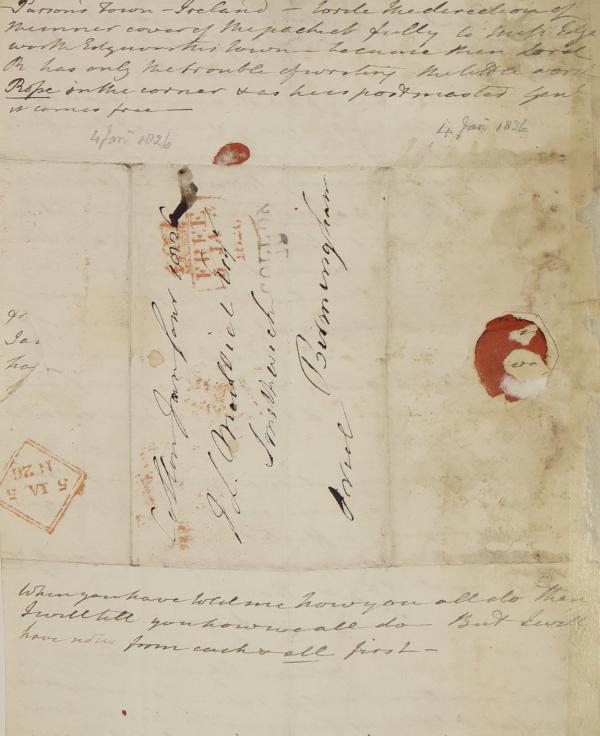 Parson's Town - Ireland - write the direction of
the inner cover of the packet fully to Miss Edge
worth Edgeworth's Town - because then Lord
R has only the trouble of writing the little word
Rosse in the corner & as he is postmaster Genl
it comes free -
4 Jany 1826
4 Jany 1826
FREE
1826
COLTON
Moilliet Esqr
Smethwick
Birmingham
5 JA 5
1826
When you have told me how you all do then
I will tell you how we all do But I will
have notes from each & all first -